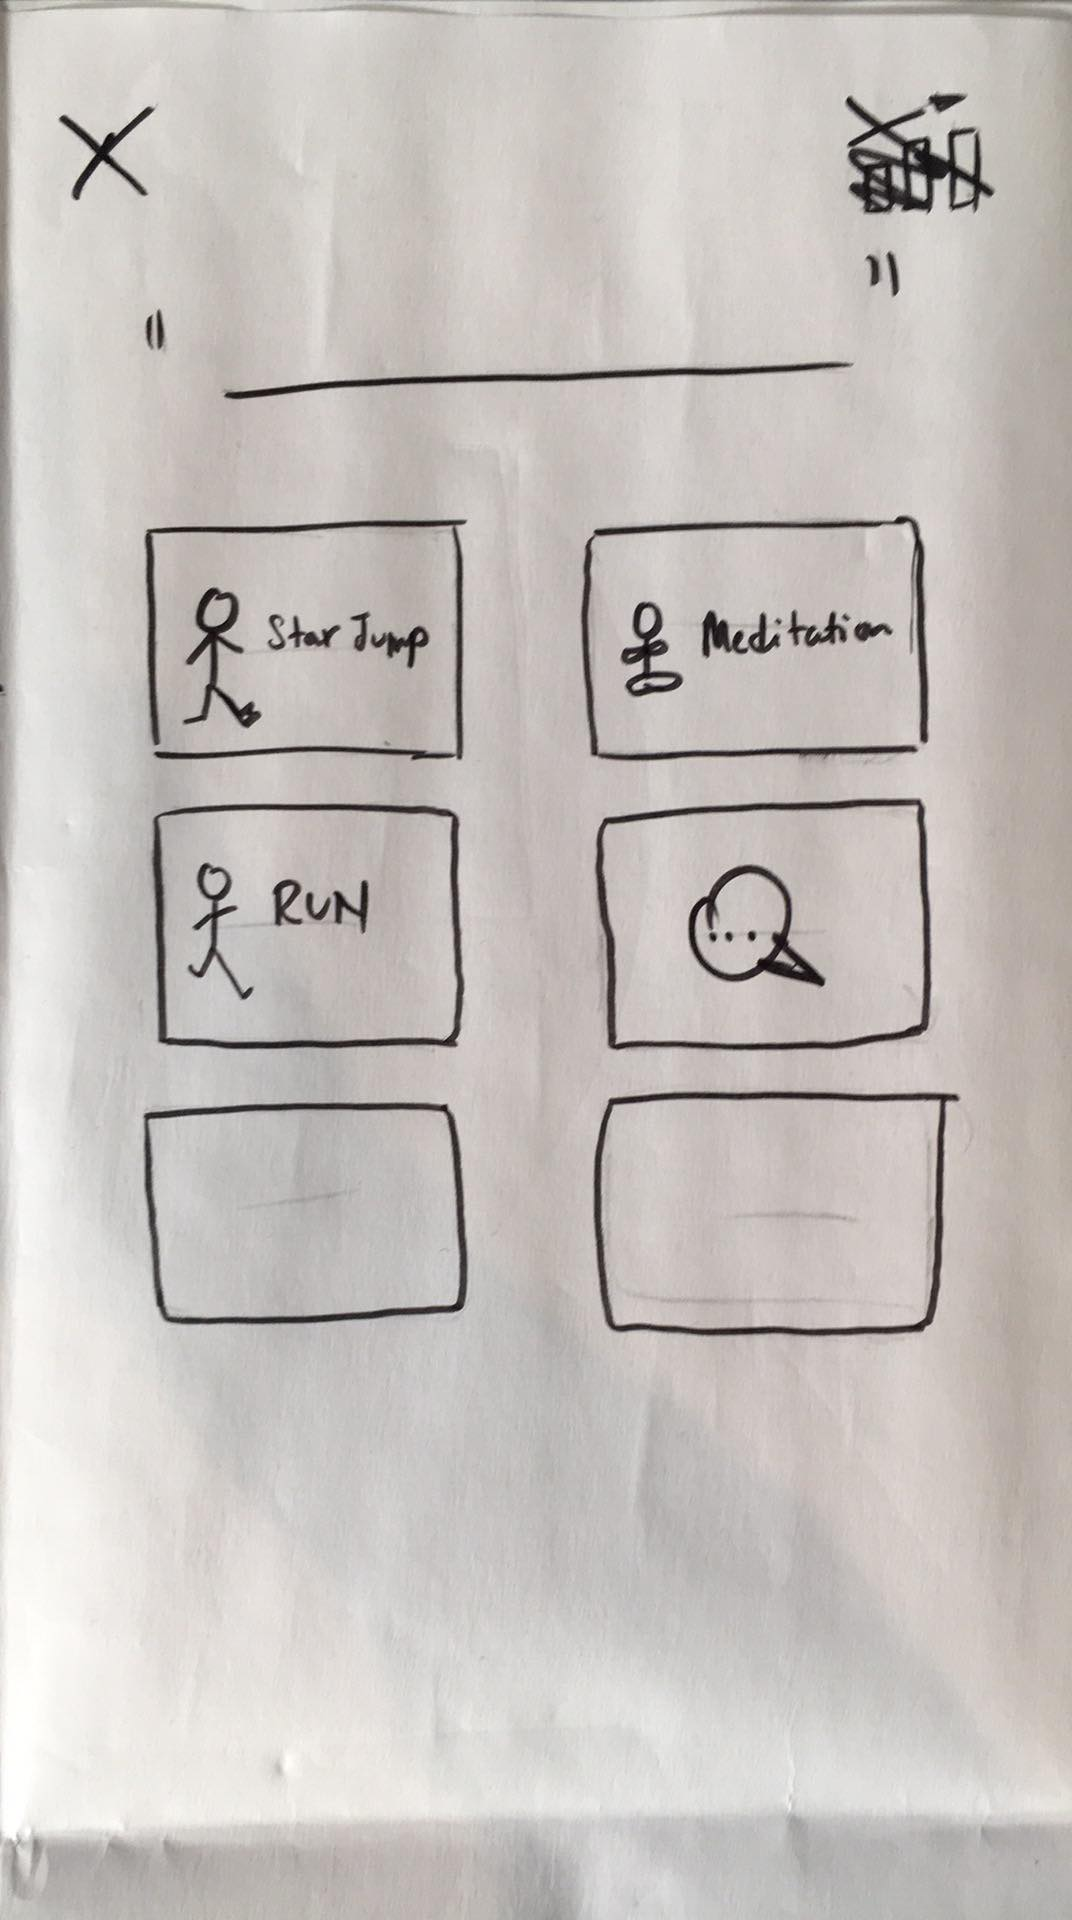 Star Jump
Meditation
RUN